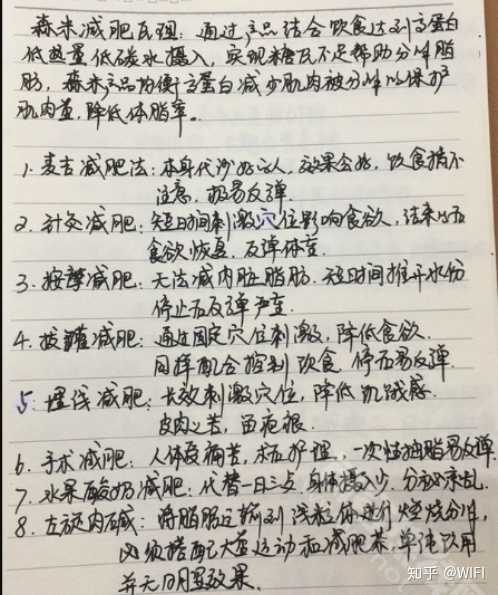 森米减肥原理：通过产品结合饮食达到高蛋白
低热量低碳水摄入，实现糖元不足帮助分解脂
肪，森米产品均衡高蛋白减少肌肉被分解以保护
肌肉量，降低体脂率。
1. 麦吉减肥法：本身代谢好的人，效果会好，饮食稍不
注意，极易反弹.
2. 针灸减肥：短时间刺激穴位影响食欲，结束以后
食欲恢复，反弹体重.
3. 按摩减肥：无法减内脏脂肪. 短时间推开水份
停止后反弹严重.
4. 拔罐减肥：通过固定穴位刺激，降低食欲.
同样配合控制饮食 停后易反弹.
5. 埋线减肥：长效刺激穴位，降低饥饿感.
皮肉之苦，留疤痕.
6. 手术减肥：人体受痛苦，术后护理，一次性抽脂易反弹.
7. 水果酸奶减肥：代替一日三点，身体摄入少，分泌紊乱.
8. 左旋肉碱：将脂肪运输到线粒体进行燃烧分解，
必须搭配大量运动和减肥茶，单纯饮用
并无明显效果.
知乎 @WIFI